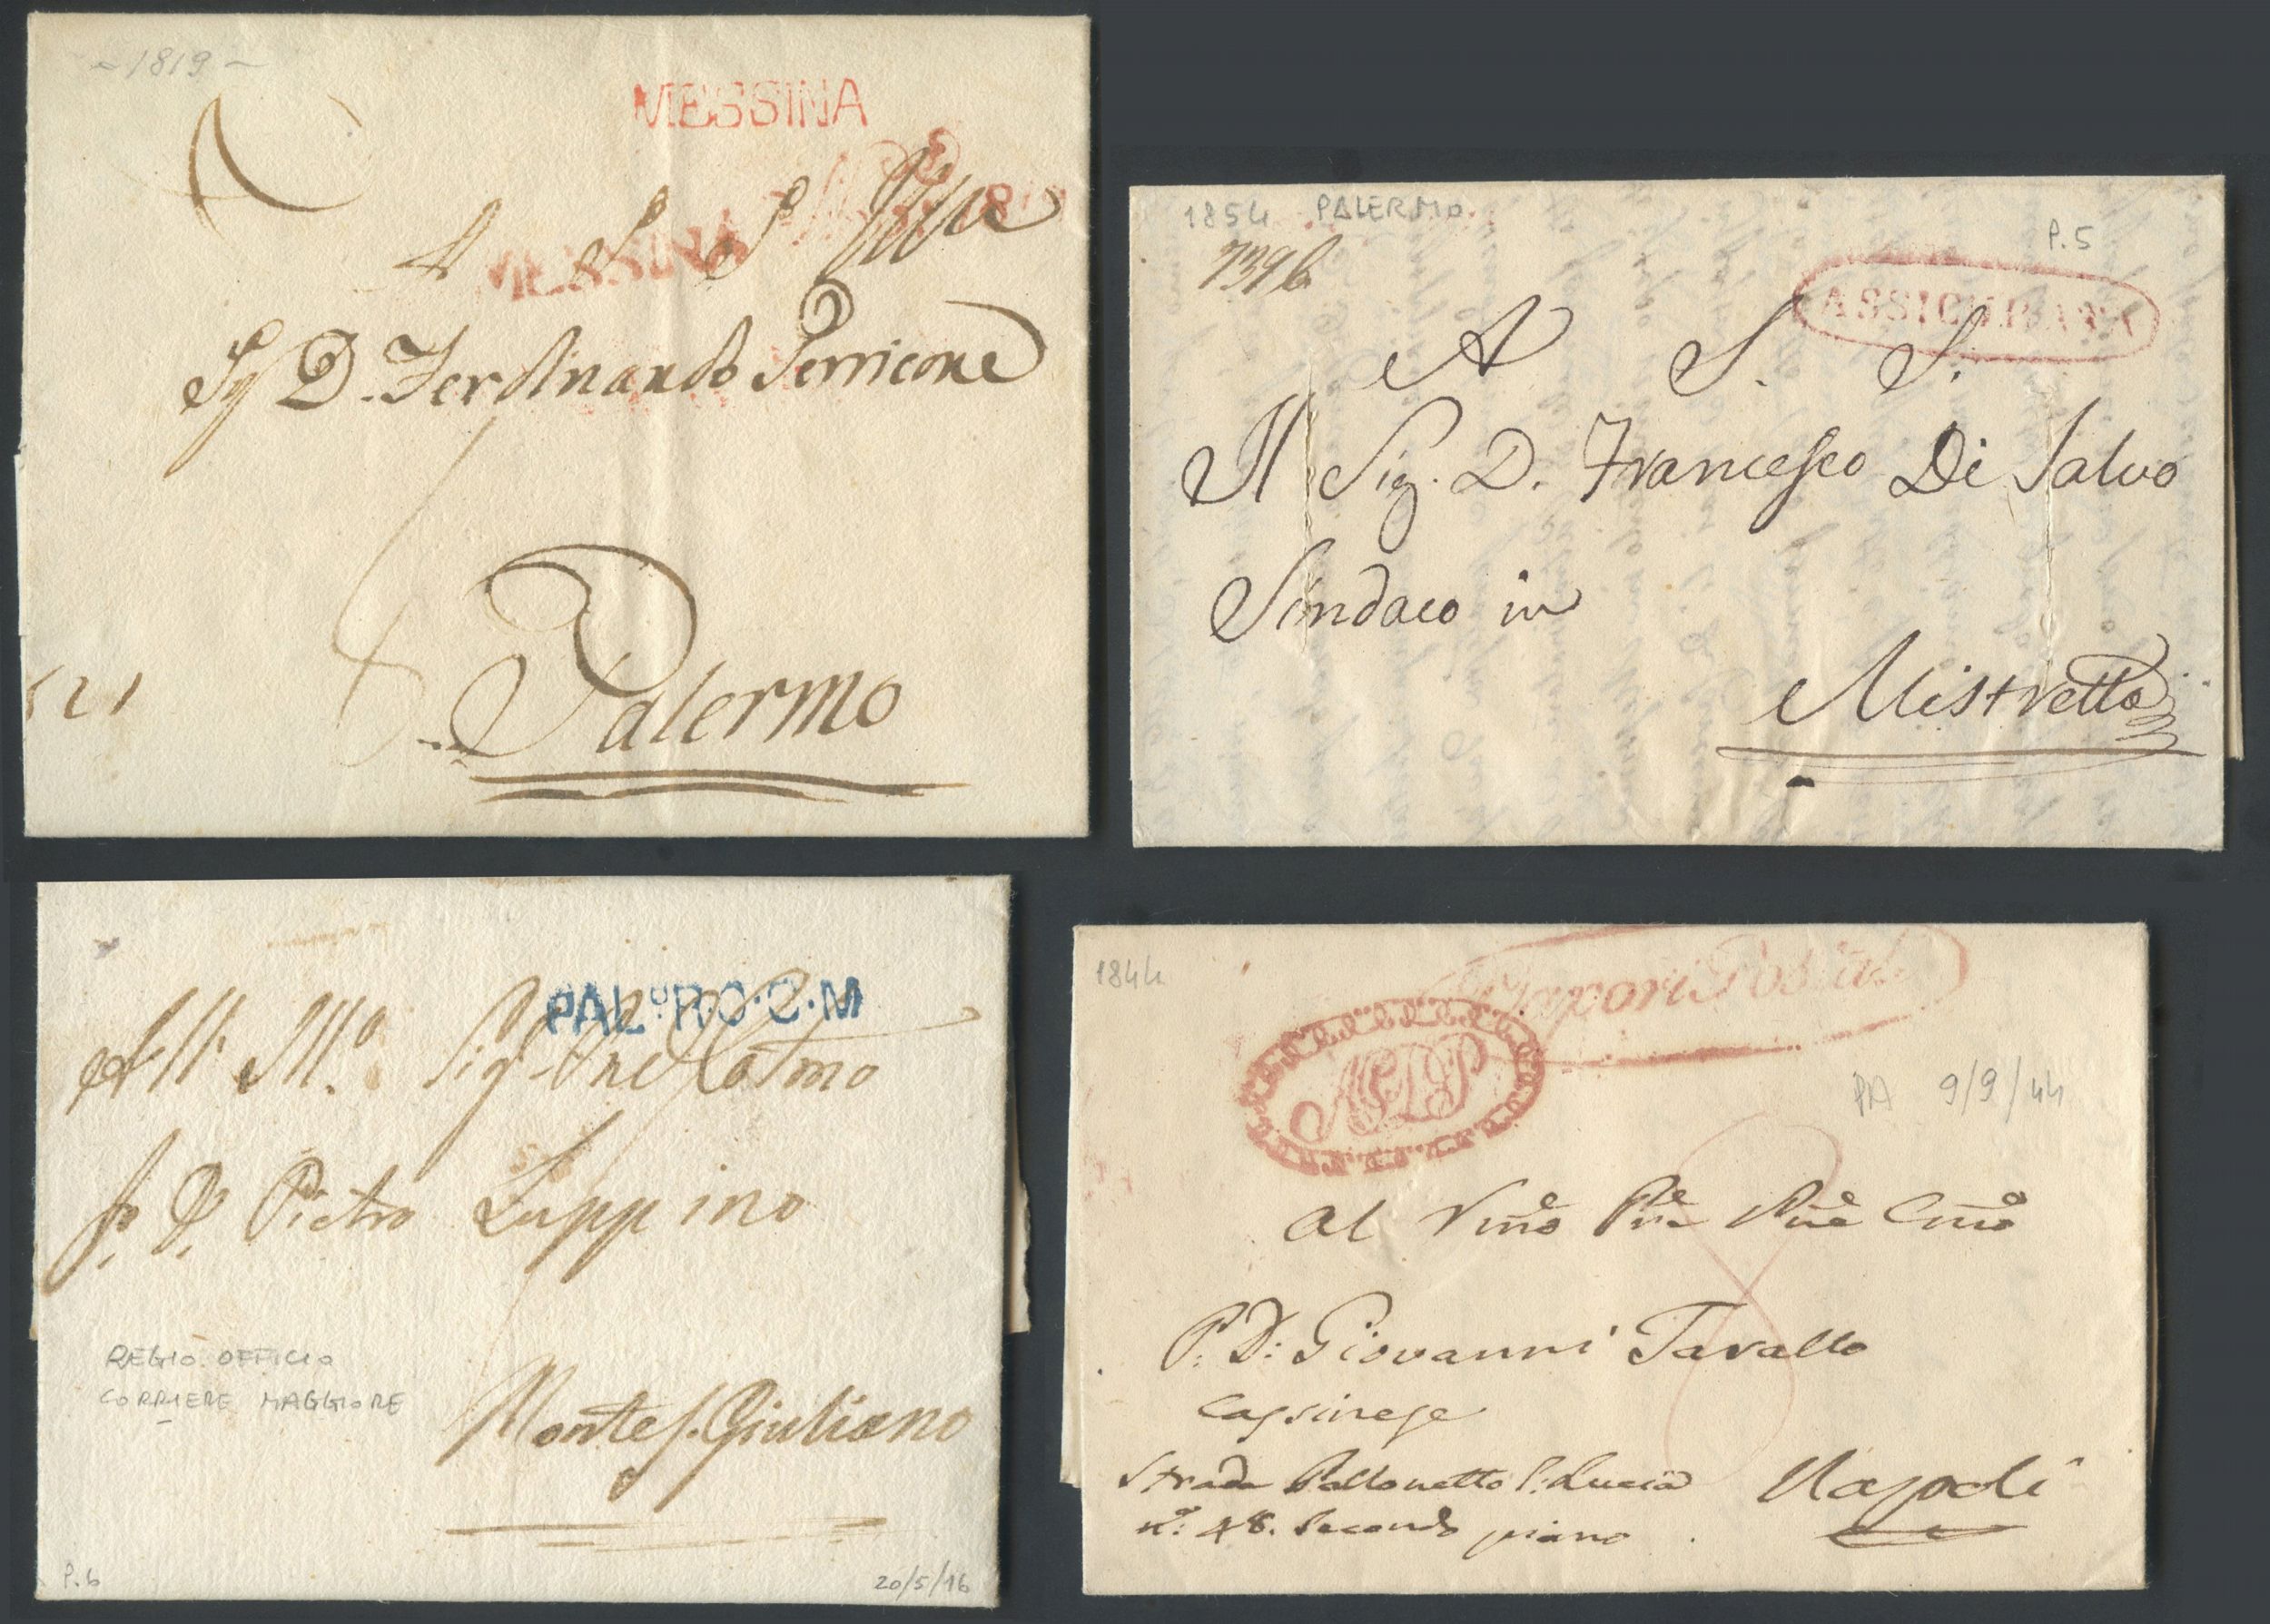 ~1819~
MESSINA
A S S
MESSINA
Sig D. Ferdinando Perricone
Palermo
1854 PALERMO
P.5
7396
ASSICURATA
A S. S.
Il Sig. D. Francesco Di Salvo
Sindaco in
Mistretta
PALº R.O.C.M
All Mº. Sig
D. Pietro Luppino
REGIO OFFICIO
CORRIERE MAGGIORE
Monte S. Giuliano
P.6
20/5/16
1844
Vapori Postali
PA 9/9/44
Al
P. D: Giovanni Tavallo
Cassinese
Strada Pallonetto S. Lucia Napoli
nº: 48. Secondo piano